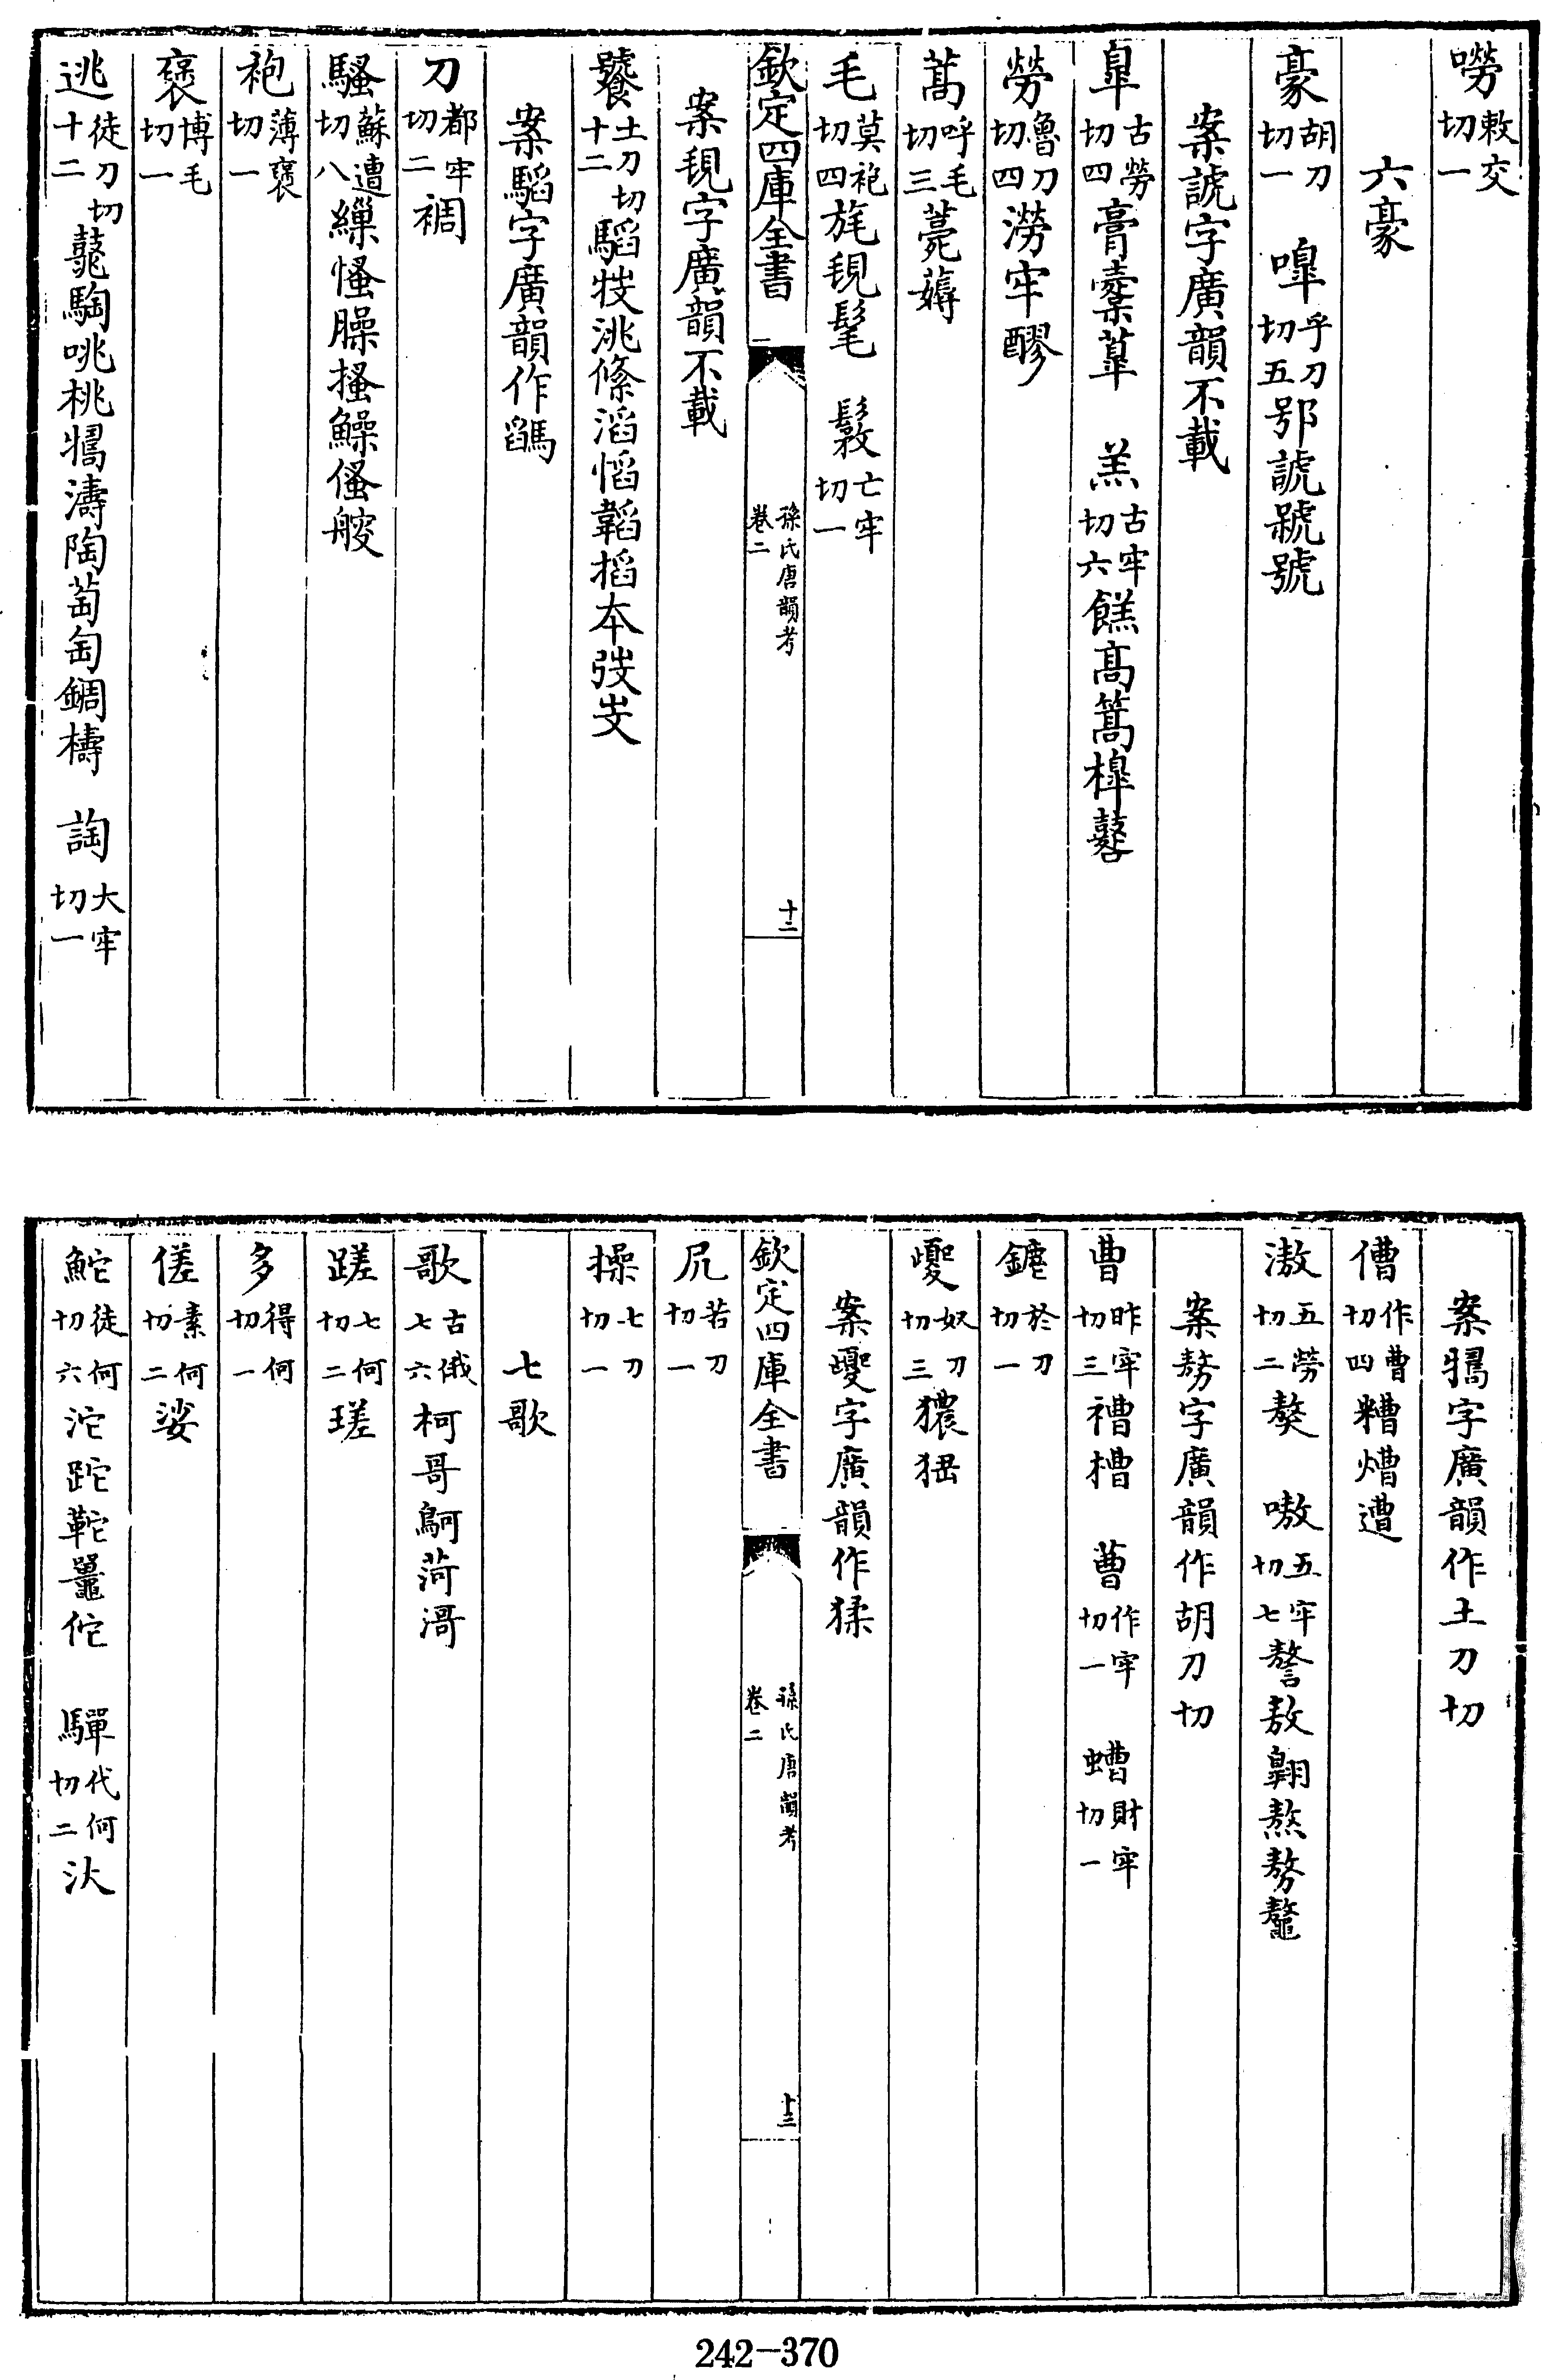 嘮敕交切一
六豪
豪胡刀切一 嘷乎刀切五郧諕號號
案諕字廣韻不載
臯古勞切四膏櫜䓘 羔古牢切六餻高篙槹鼛
勞魯刀切四澇牢醪
蒿呼毛切三薧薅
毛莫袍切四旄覒髦 髳亡牢切一
欽定四庫全書 孫氏唐韻考 卷二 十二
案覒字廣韻不載
饕土刀切十二騊㹗洮絛滔慆韜搯夲弢㞈
案騊字廣韻作䮹
刀都牢切二裯
騷蘇遭切八繅慅臊搔鱢傜艘
袍薄褒切一
褒博毛切一
逃徒刀切十二鼗騊咷桃㹗濤陶萄匋錭檮 詾大牢切一
案㹗字廣韻作土刀切
傮作曹切四糟熸遭
滶五勞切二獒 嗷五牢切七謷敖翺熬𠢕鼇
案𠢕字廣韻作胡刀切
曹昨牢切三褿槽 蓸作牢切一 螬財牢切一
鏕於刀切一
夒奴刀切三獶峱
案夒字廣韻作猱
欽定四庫全書 孫氏唐韻考 卷二 十三
尻苦刀切一
操七刀切一
七歌
歌古俄切七六柯哥鴚菏滒
蹉七何切二瑳
多得何切一
傞素何切二娑
鮀徒何切六沱跎鞁鼉佗 驒代何切二汏
242-370